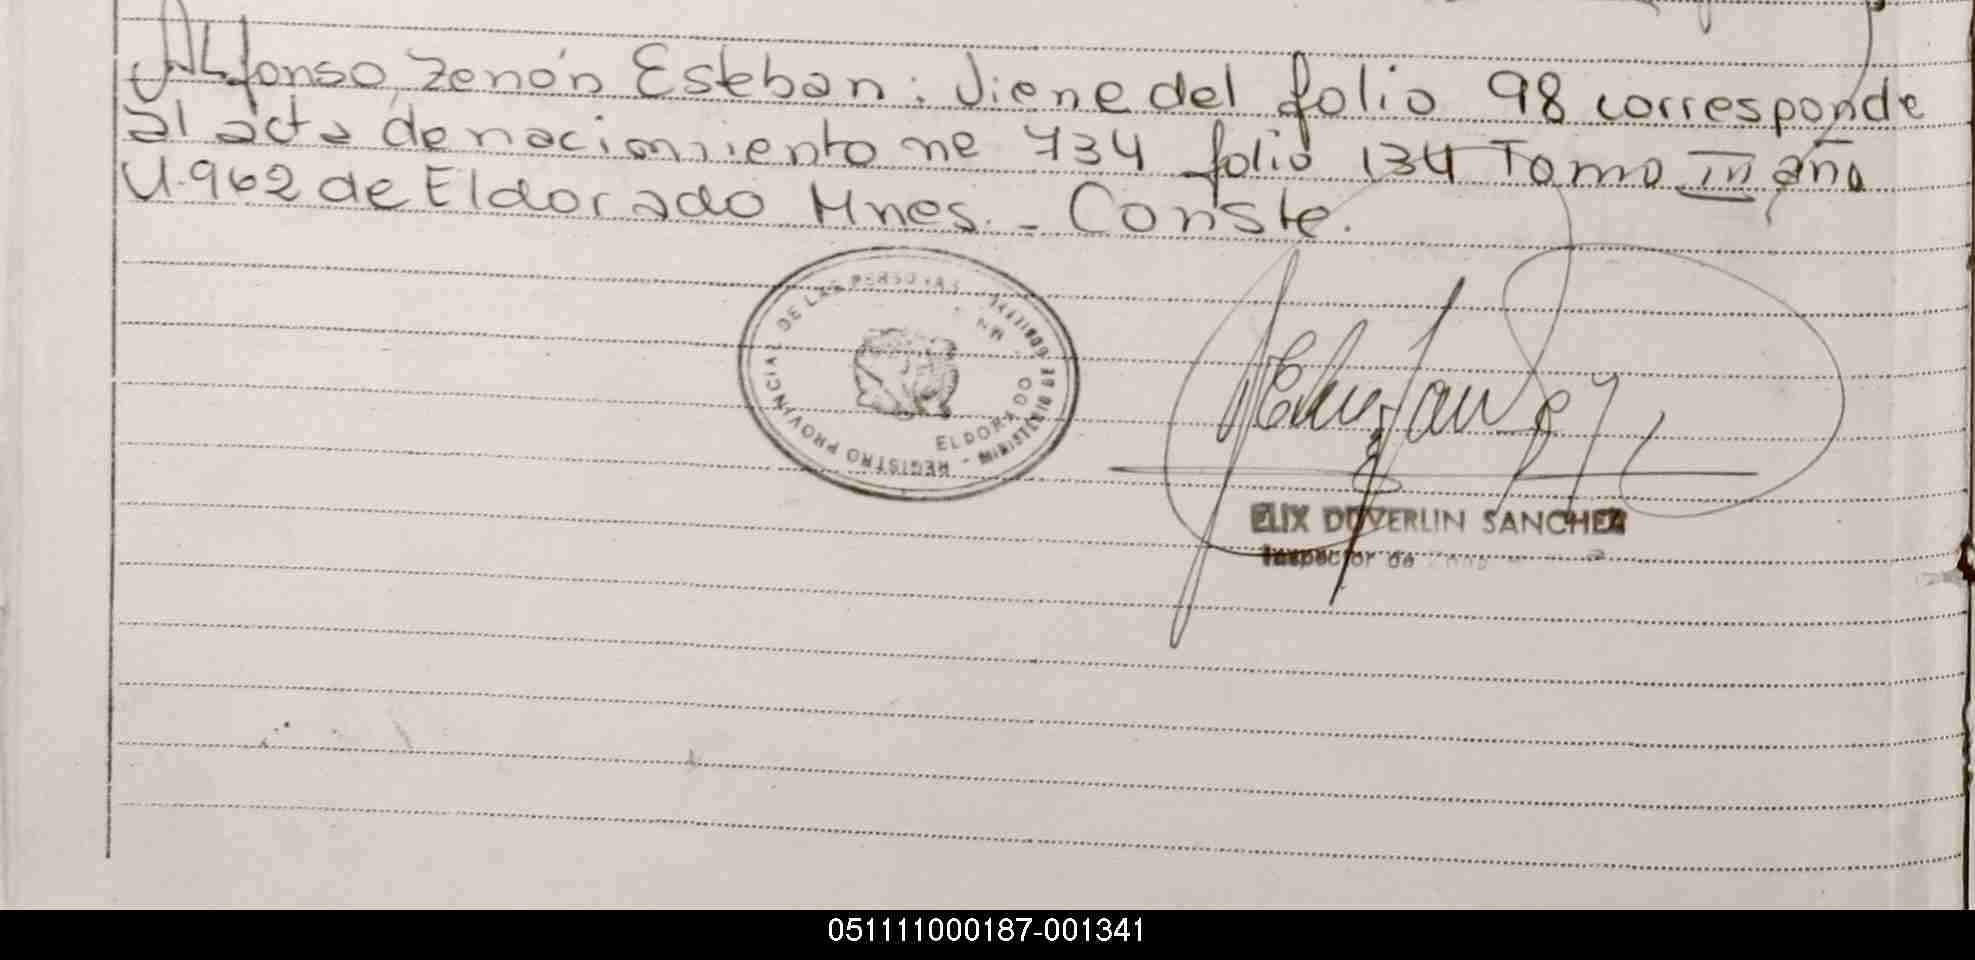 Alfonso, Zenón Esteban: Viene del folio 98 corresponde
al acta de nacimiento nº 734 folio 134 Tomo III año
1.962 de Eldorado Mnes. - Conste.
REGISTRO PROVINCIAL DE LAS PERSONAS - MINISTERIO DE GOBIERNO
ELDORADO - MN -
ELIX DUVERLIN SANCHEZ
Inspector de
051111000187-001341